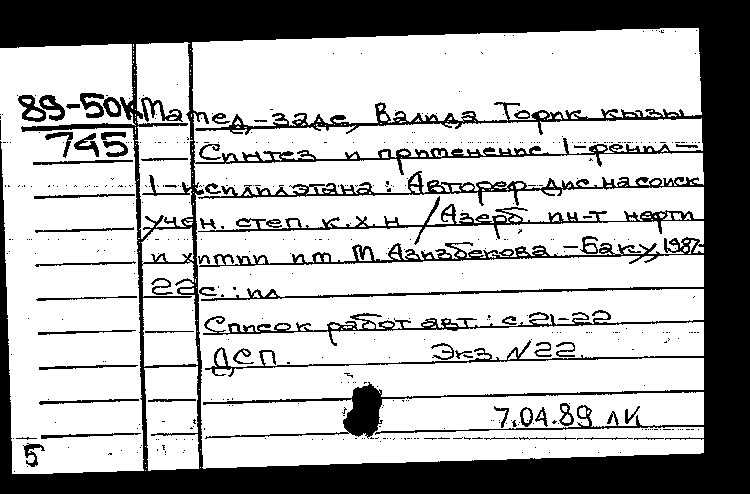 89-50к Мамед-заде, Валида Торик кызы
745 Синтез и применение 1-фенил-
1-ксилилэтана: Автореф. дис. на соиск
учен. степ. к.х.н / Азерб. ин-т нефти
и химии им. М. Азизбекова. - Баку, 1987.
22 с. : ил
Список работ авт.: с. 21-22
ДСП. Экз. N 22.
7.04.89 лк
5